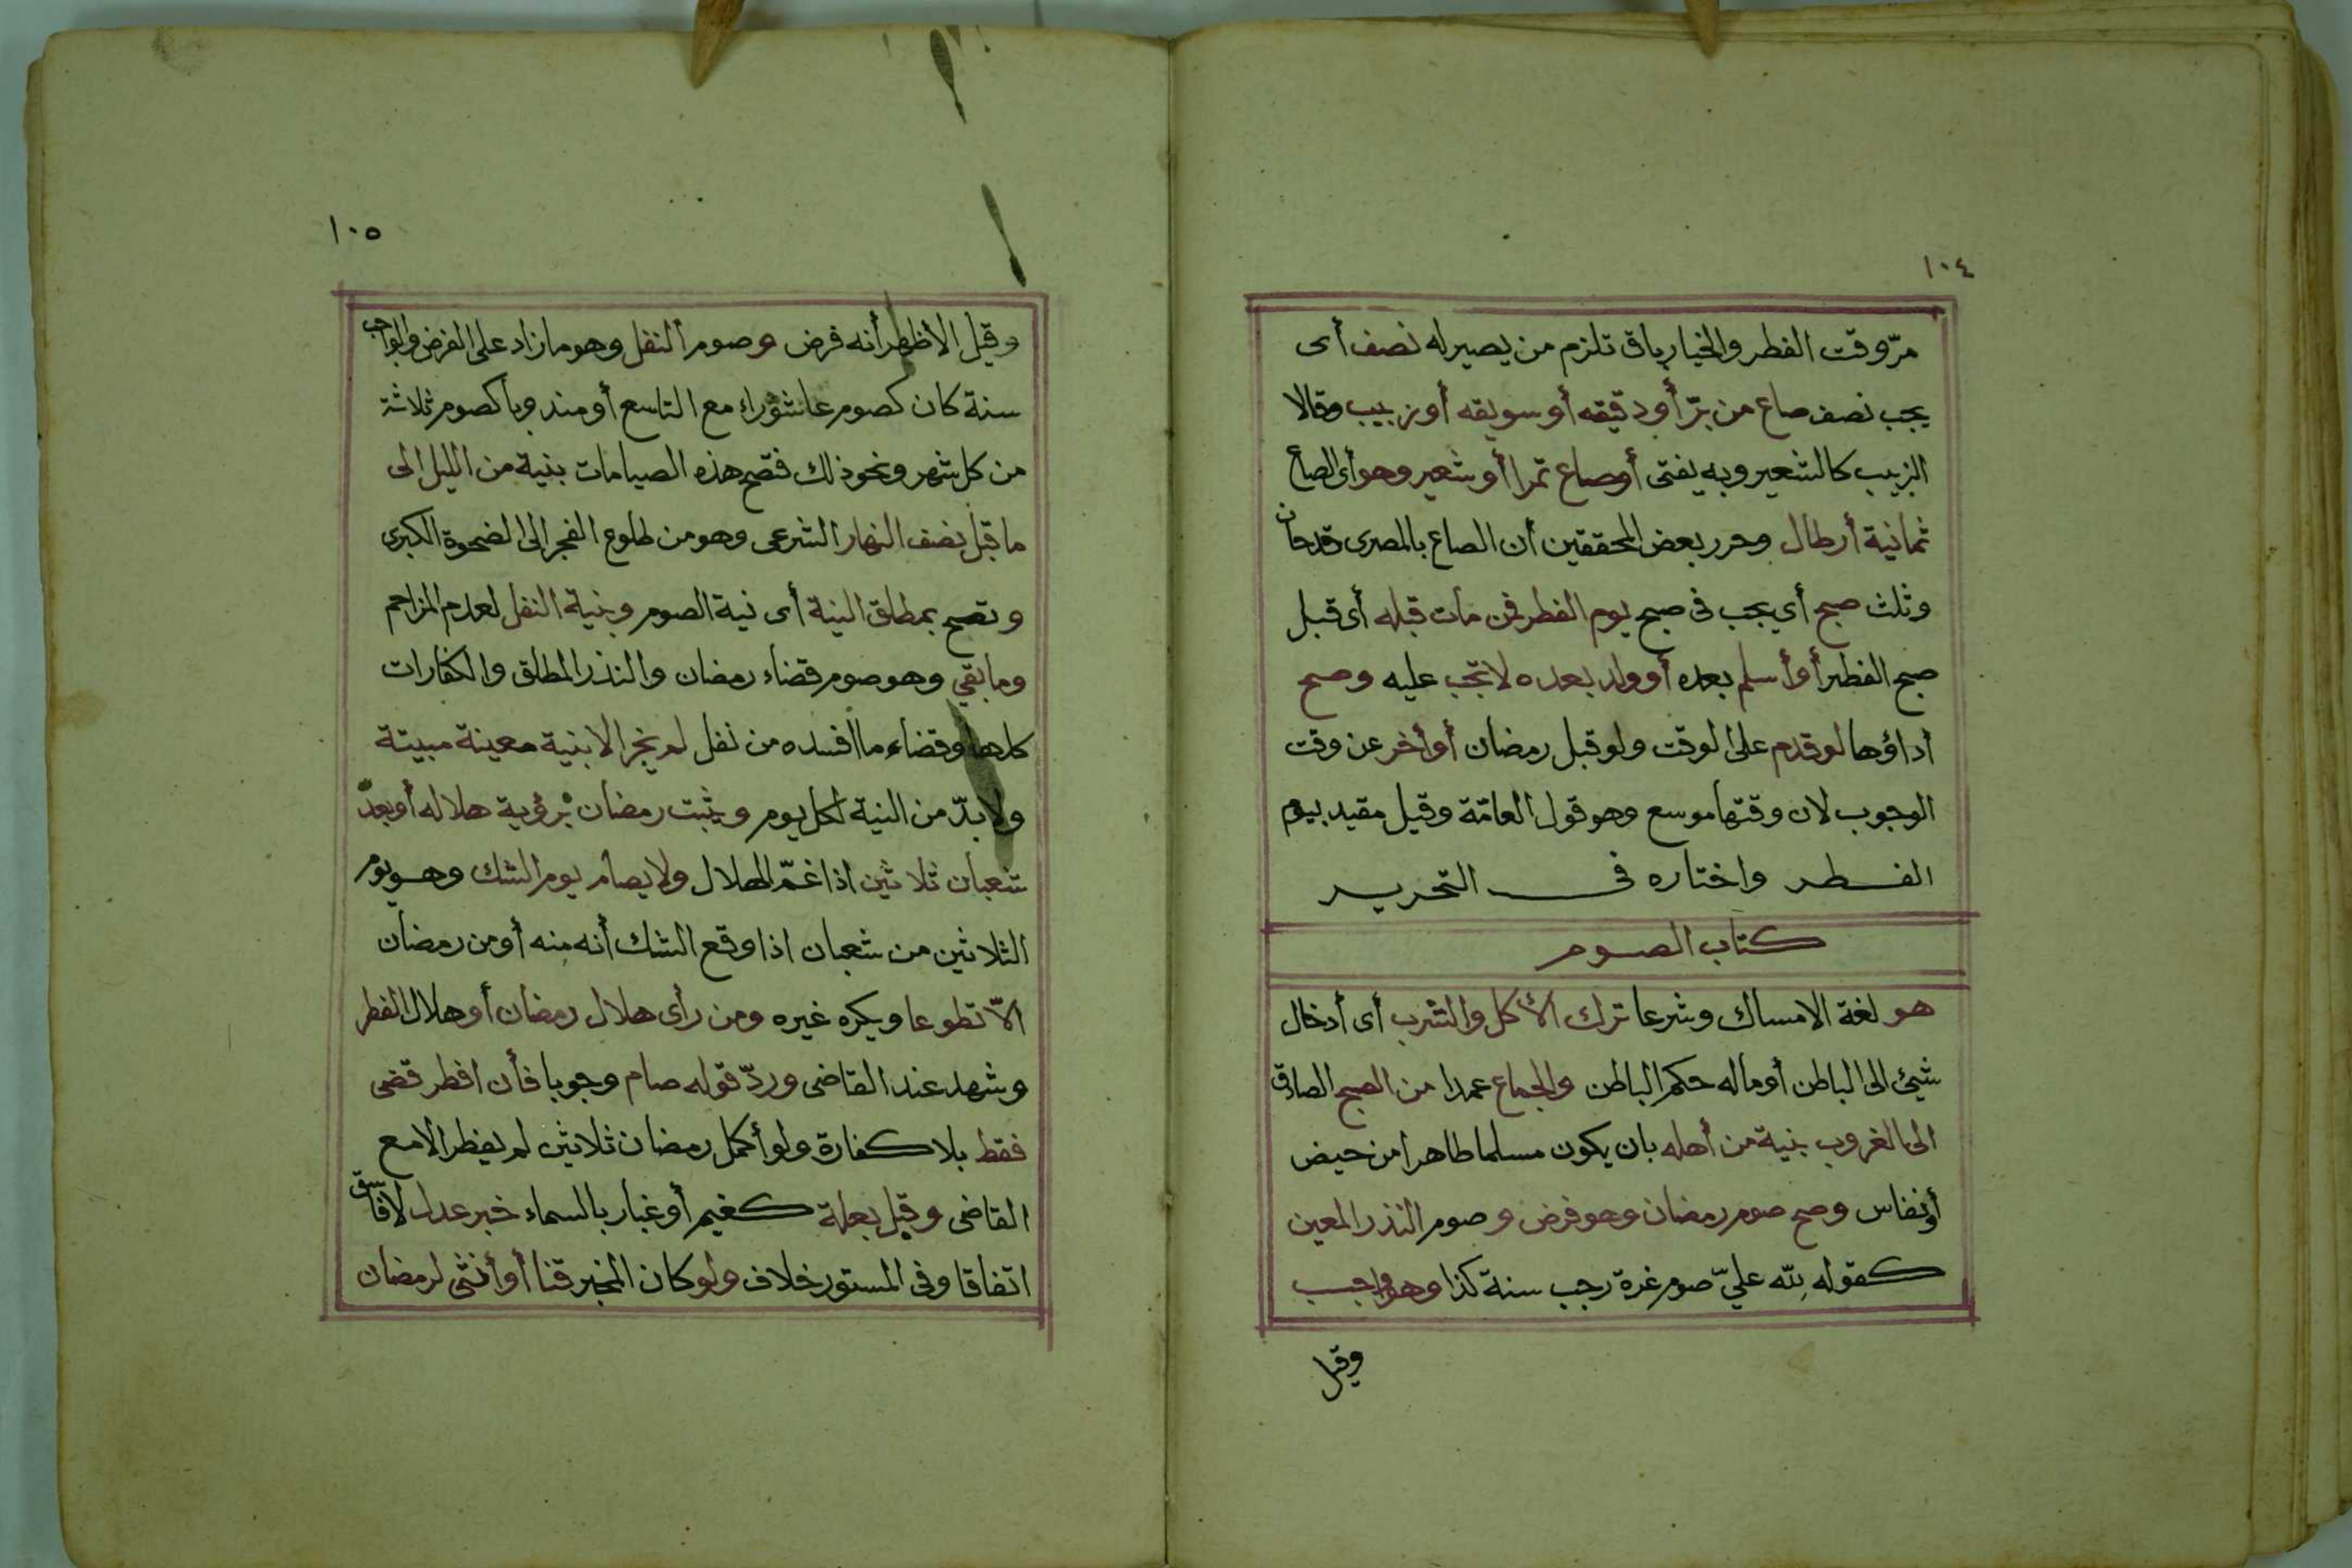 ١٠٤
مرّ وقت الفطر والخيار باق تلزم من يصير له نصف أى
يجب نصف صاع من برّ أو دقيقه أو سويقه أو زبيب وقالا
الزبيب كالشعير وبه يفتى أوصاع تمرا أو شعير وهو أى الصاع
ثمانية أرطال وحرر بعض المحققين أن الصاع بالمصرى قدحان
وثلث صبح أي يجب فى صبح يوم الفطر فمن مات قبله أى قبل
صبح الفطر أو أسلم بعده أو ولد بعده لا تجب عليه وصح
أداؤها لو قدم على الوقت ولو قبل رمضان أو أخر عن وقت
الوجوب لان وقتها موسع وهو قول العامّة وقيل مقيد بيوم
الفطر واختاره فى التحرير
كتاب الصوم
هو لغة الامساك وشرعا ترك الأكل والشرب أى أدخال
شيئ الى الباطن أو ماله حكم الباطن والجماع عمدا من الصبح الصادق
الى الغروب بنية من أهله بان يكون مسلما طاهرا من حيض
أونفاس وصح صوم رمضان وهو فرض وصوم النذر المعين
كقوله لله عليّ صوم غرة رجب سنة كذا وهو واجب
وقيل
١٠٥
وقيل الاظهر أنه فرض وصوم النفل وهو ما زاد على الفرض والواجب
سنة كان كصوم عاشوراء مع التاسع أو مندوبا كصوم ثلاثة
من كل شهر ونحو ذلك فتصح هذه الصيامات بنية من الليل الى
ما قبل نصف النهار الشرعى وهو من طلوع الفجر الى الضحوة الكبرى
وتصح بمطلق النية أى نية الصوم وبنية النفل لعدم المزاحم
وما بقي وهو صوم قضاء رمضان والنذر المطلق والكفارات
كلها وقضاء ما افسده من نفل لم يجز الا بنية معينة مبيتة
ولا بدّ من النية لكل يوم ويثبت رمضان برؤية هلاله أو بعدّ
شعبان ثلاثين اذا غمّ الهلال ولا يصام يوم الشك وهو يوم
الثلاثين من شعبان اذا وقع الشك أنه منه أو من رمضان
الاّ تطوعا ويكره غيره ومن رأى هلال رمضان أو هلال الفطر
وشهد عند القاضى وردّ قوله صام وجوبا فأن افطر قضى
فقط بلا كفارة ولو أكمل رمضان ثلاثين لم يفطر الا مع
القاضى وقبل بعلة كغيم أو غبار بالسماء خبر عدل لا فاسق
اتفاقا وفى المستور خلاف ولو كان المخبر قنا أو أنثى لرمضان